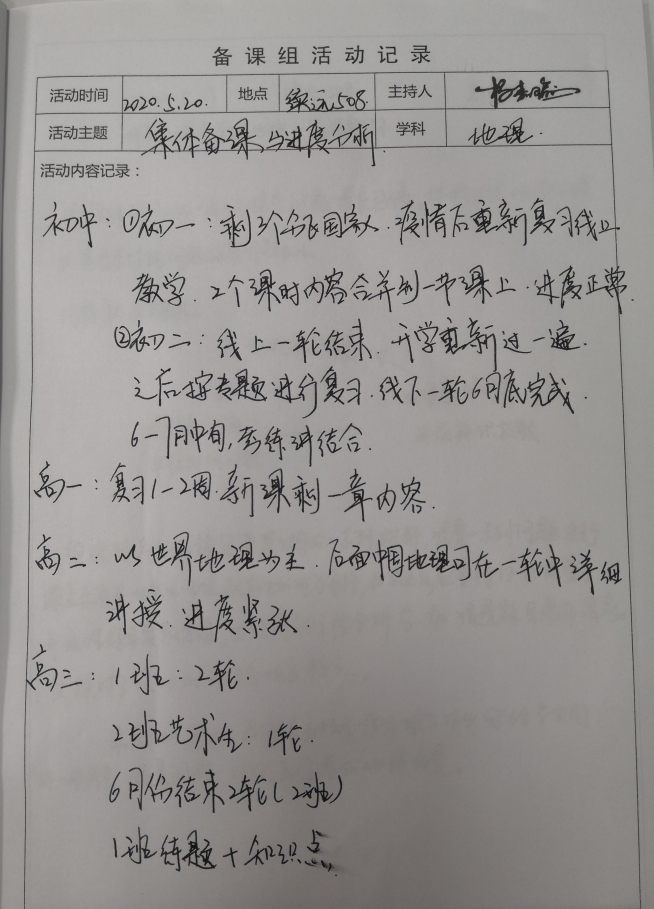 备课组活动记录
活动时间 2020.5.20. 地点 508 主持人
活动主题 集体备课与进度分析 学科 地理.
活动内容记录：
初中：①初一：剩3个分区国家. 疫情后重新复习线上
教学. 2个课时内容合并到一节课上. 进度正常.
②初二：线上一轮结束. 开学重新过一遍.
之后按专题进行复习. 线下一轮6月底完成.
6-7月中旬, 练讲结合.
高一：复习1-2周. 新课剩一章内容.
高二：以世界地理为主. 后面中国地理可在一轮中详细
讲授. 进度紧张.
高三：1班：2轮.
2班艺术生：1轮.
6月份结束2轮(2班)
1班练题+知识点.